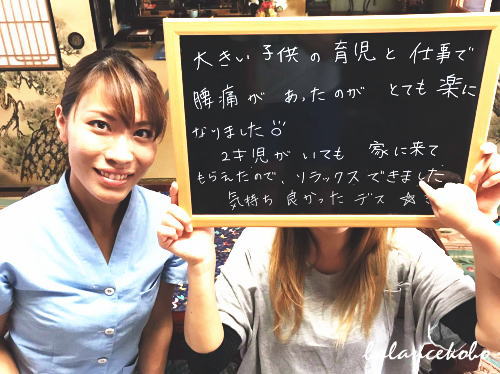 大きい子供の育児と仕事で
腰痛があったのがとても楽に
なりました
2才児がいても 家に来て
もらえたので、リラックスできました
気持ち良かったデス ☆
balancekobo